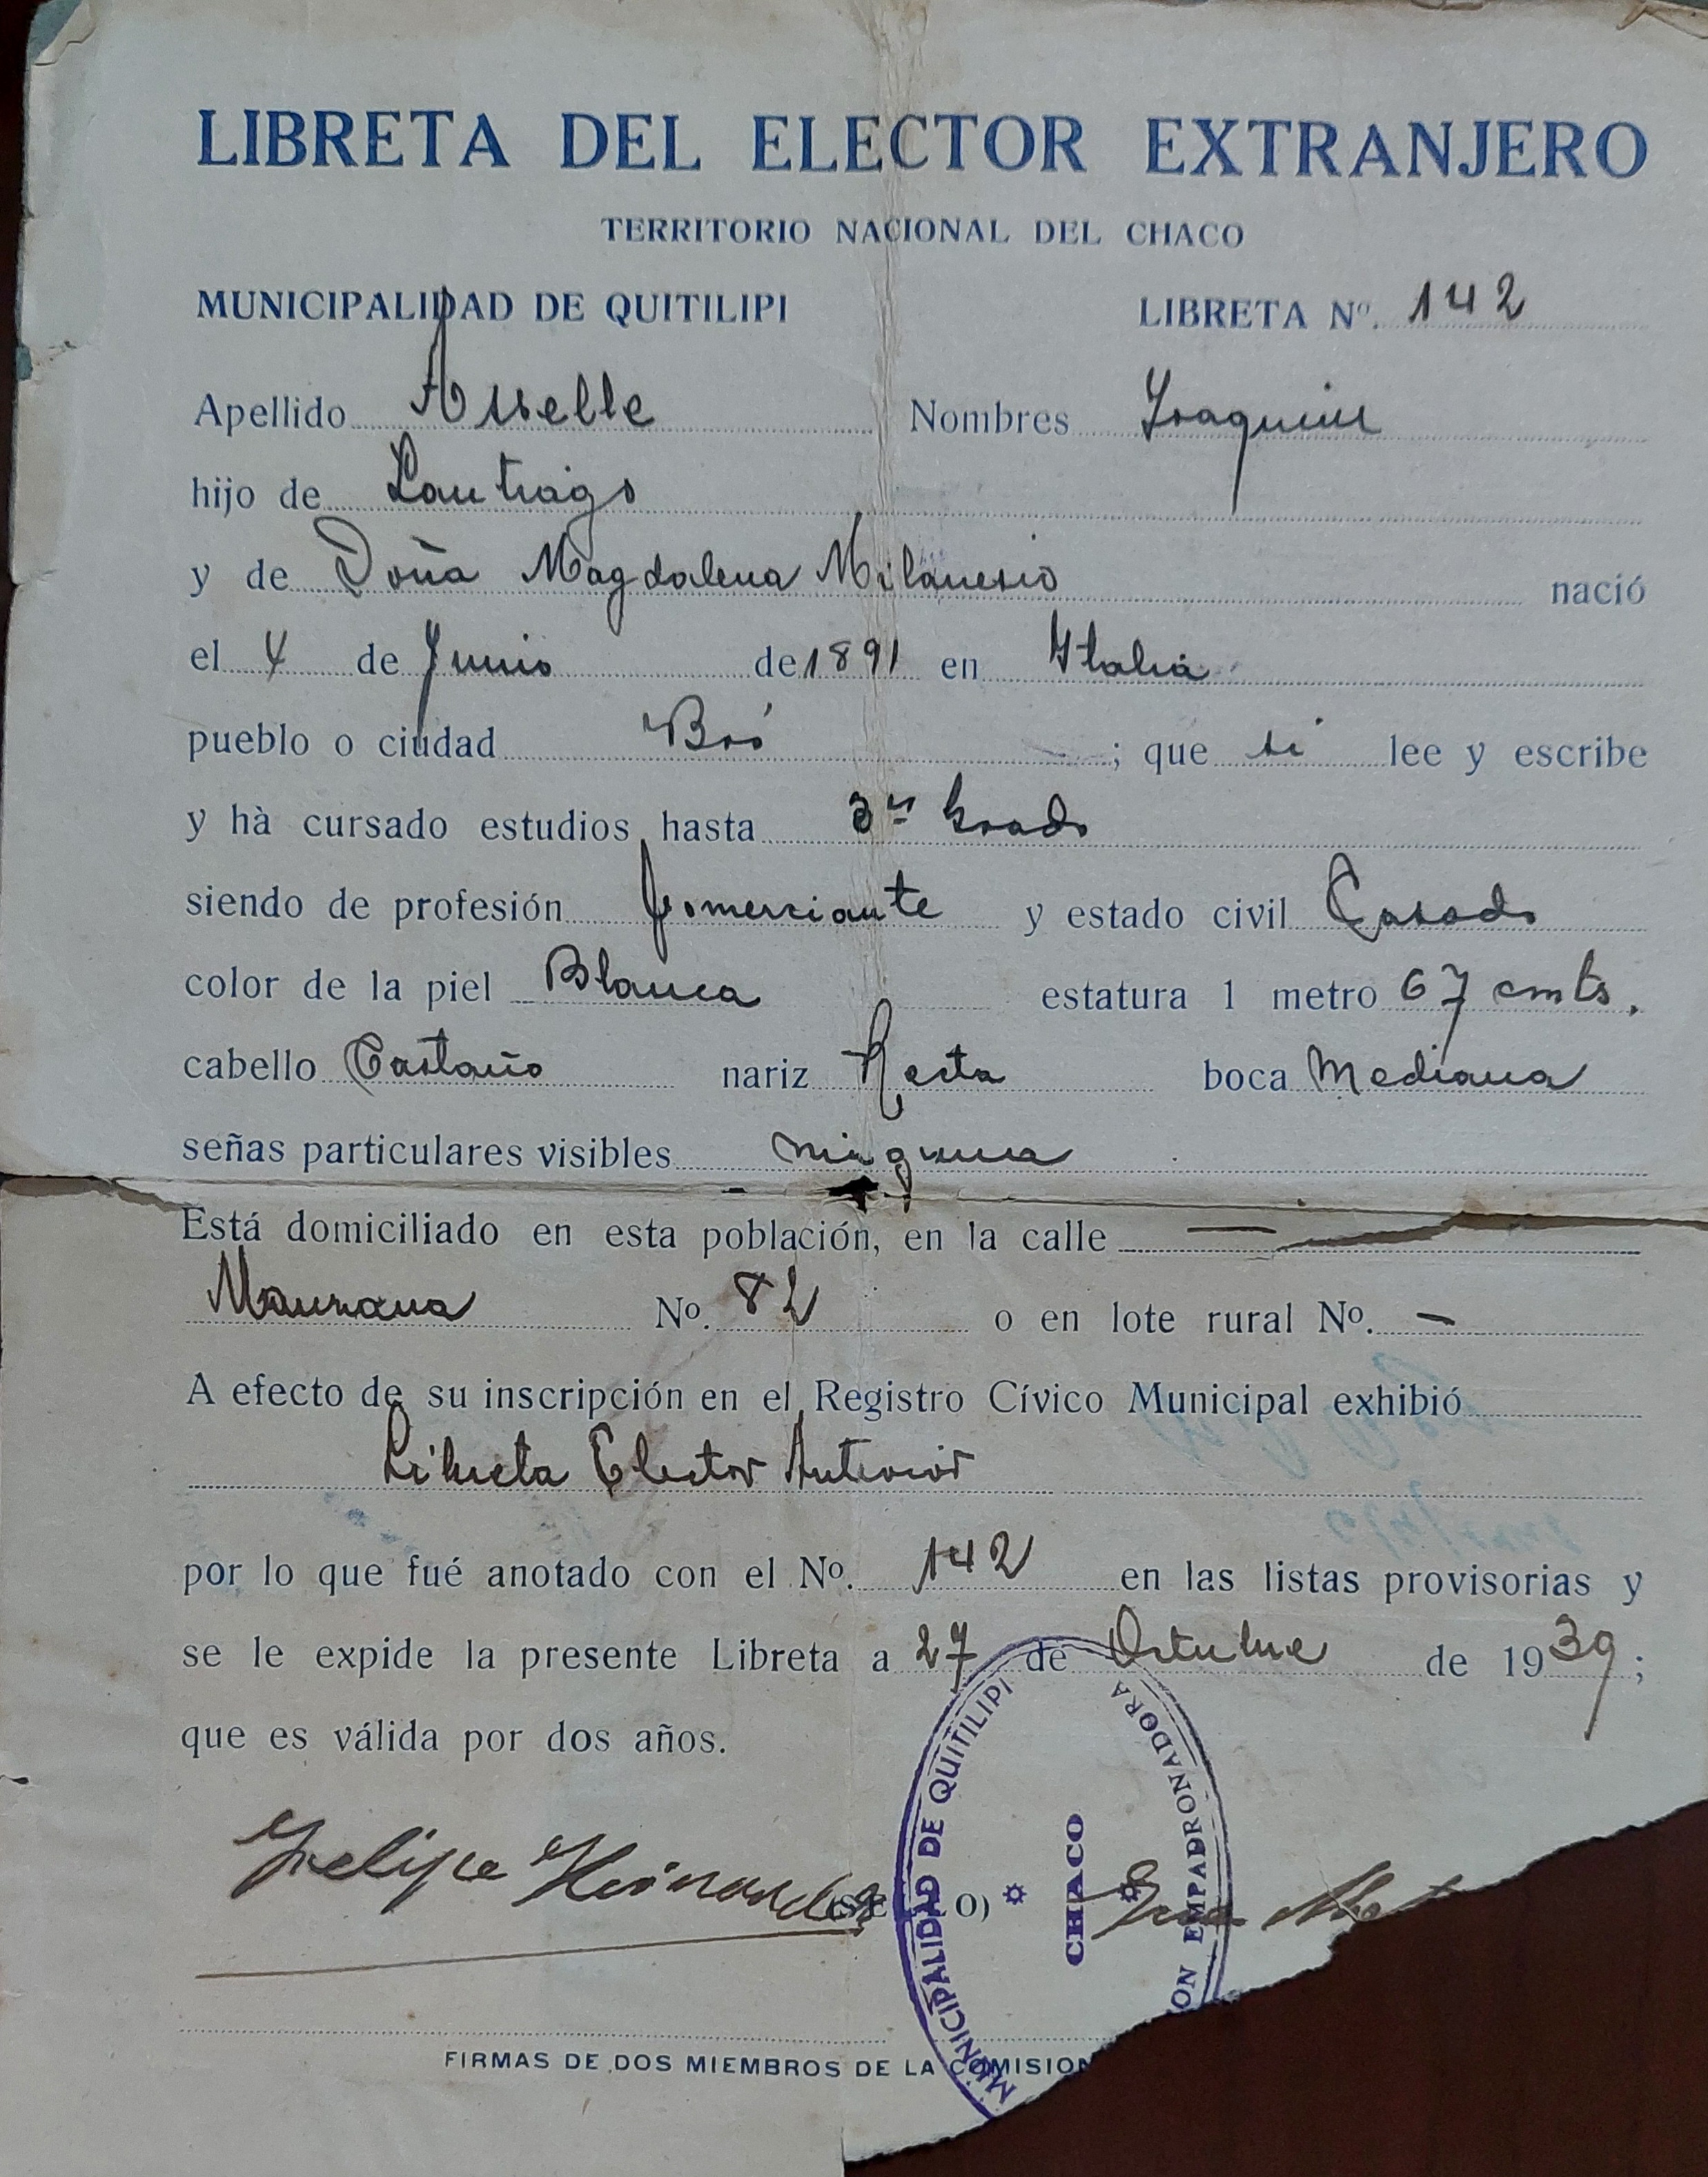 LIBRETA DEL ELECTOR EXTRANJERO
TERRITORIO NACIONAL DEL CHACO
MUNICIPALIDAD DE QUITILIPI LIBRETA Nº. 142
Apellido Asselle Nombres Joaquin
hijo de Santiago
y de Doña Magdalena Milanesio nació
el 4 de Junio de 1891 en Italia
pueblo o ciudad Brá ; que si lee y escribe
y hà cursado estudios hasta 3er Grado
siendo de profesión Comerciante y estado civil Casado
color de la piel Blanca estatura 1 metro 67 cmts.
cabello Castaño nariz Recta boca Mediana
señas particulares visibles ninguna
Está domiciliado en esta población, en la calle —
Manzana Nº. 82 o en lote rural Nº. —
A efecto de su inscripción en el Registro Cívico Municipal exhibió
Libreta Elector Anterior
por lo que fué anotado con el Nº. 142 en las listas provisorias y
se le expide la presente Libreta a 27 de Octubre de 1939;
que es válida por dos años.
Felipe Hernandez
MUNICIPALIDAD DE QUITILIPI
CHACO
ON EMPADRONADORA
FIRMAS DE DOS MIEMBROS DE LA COMISION